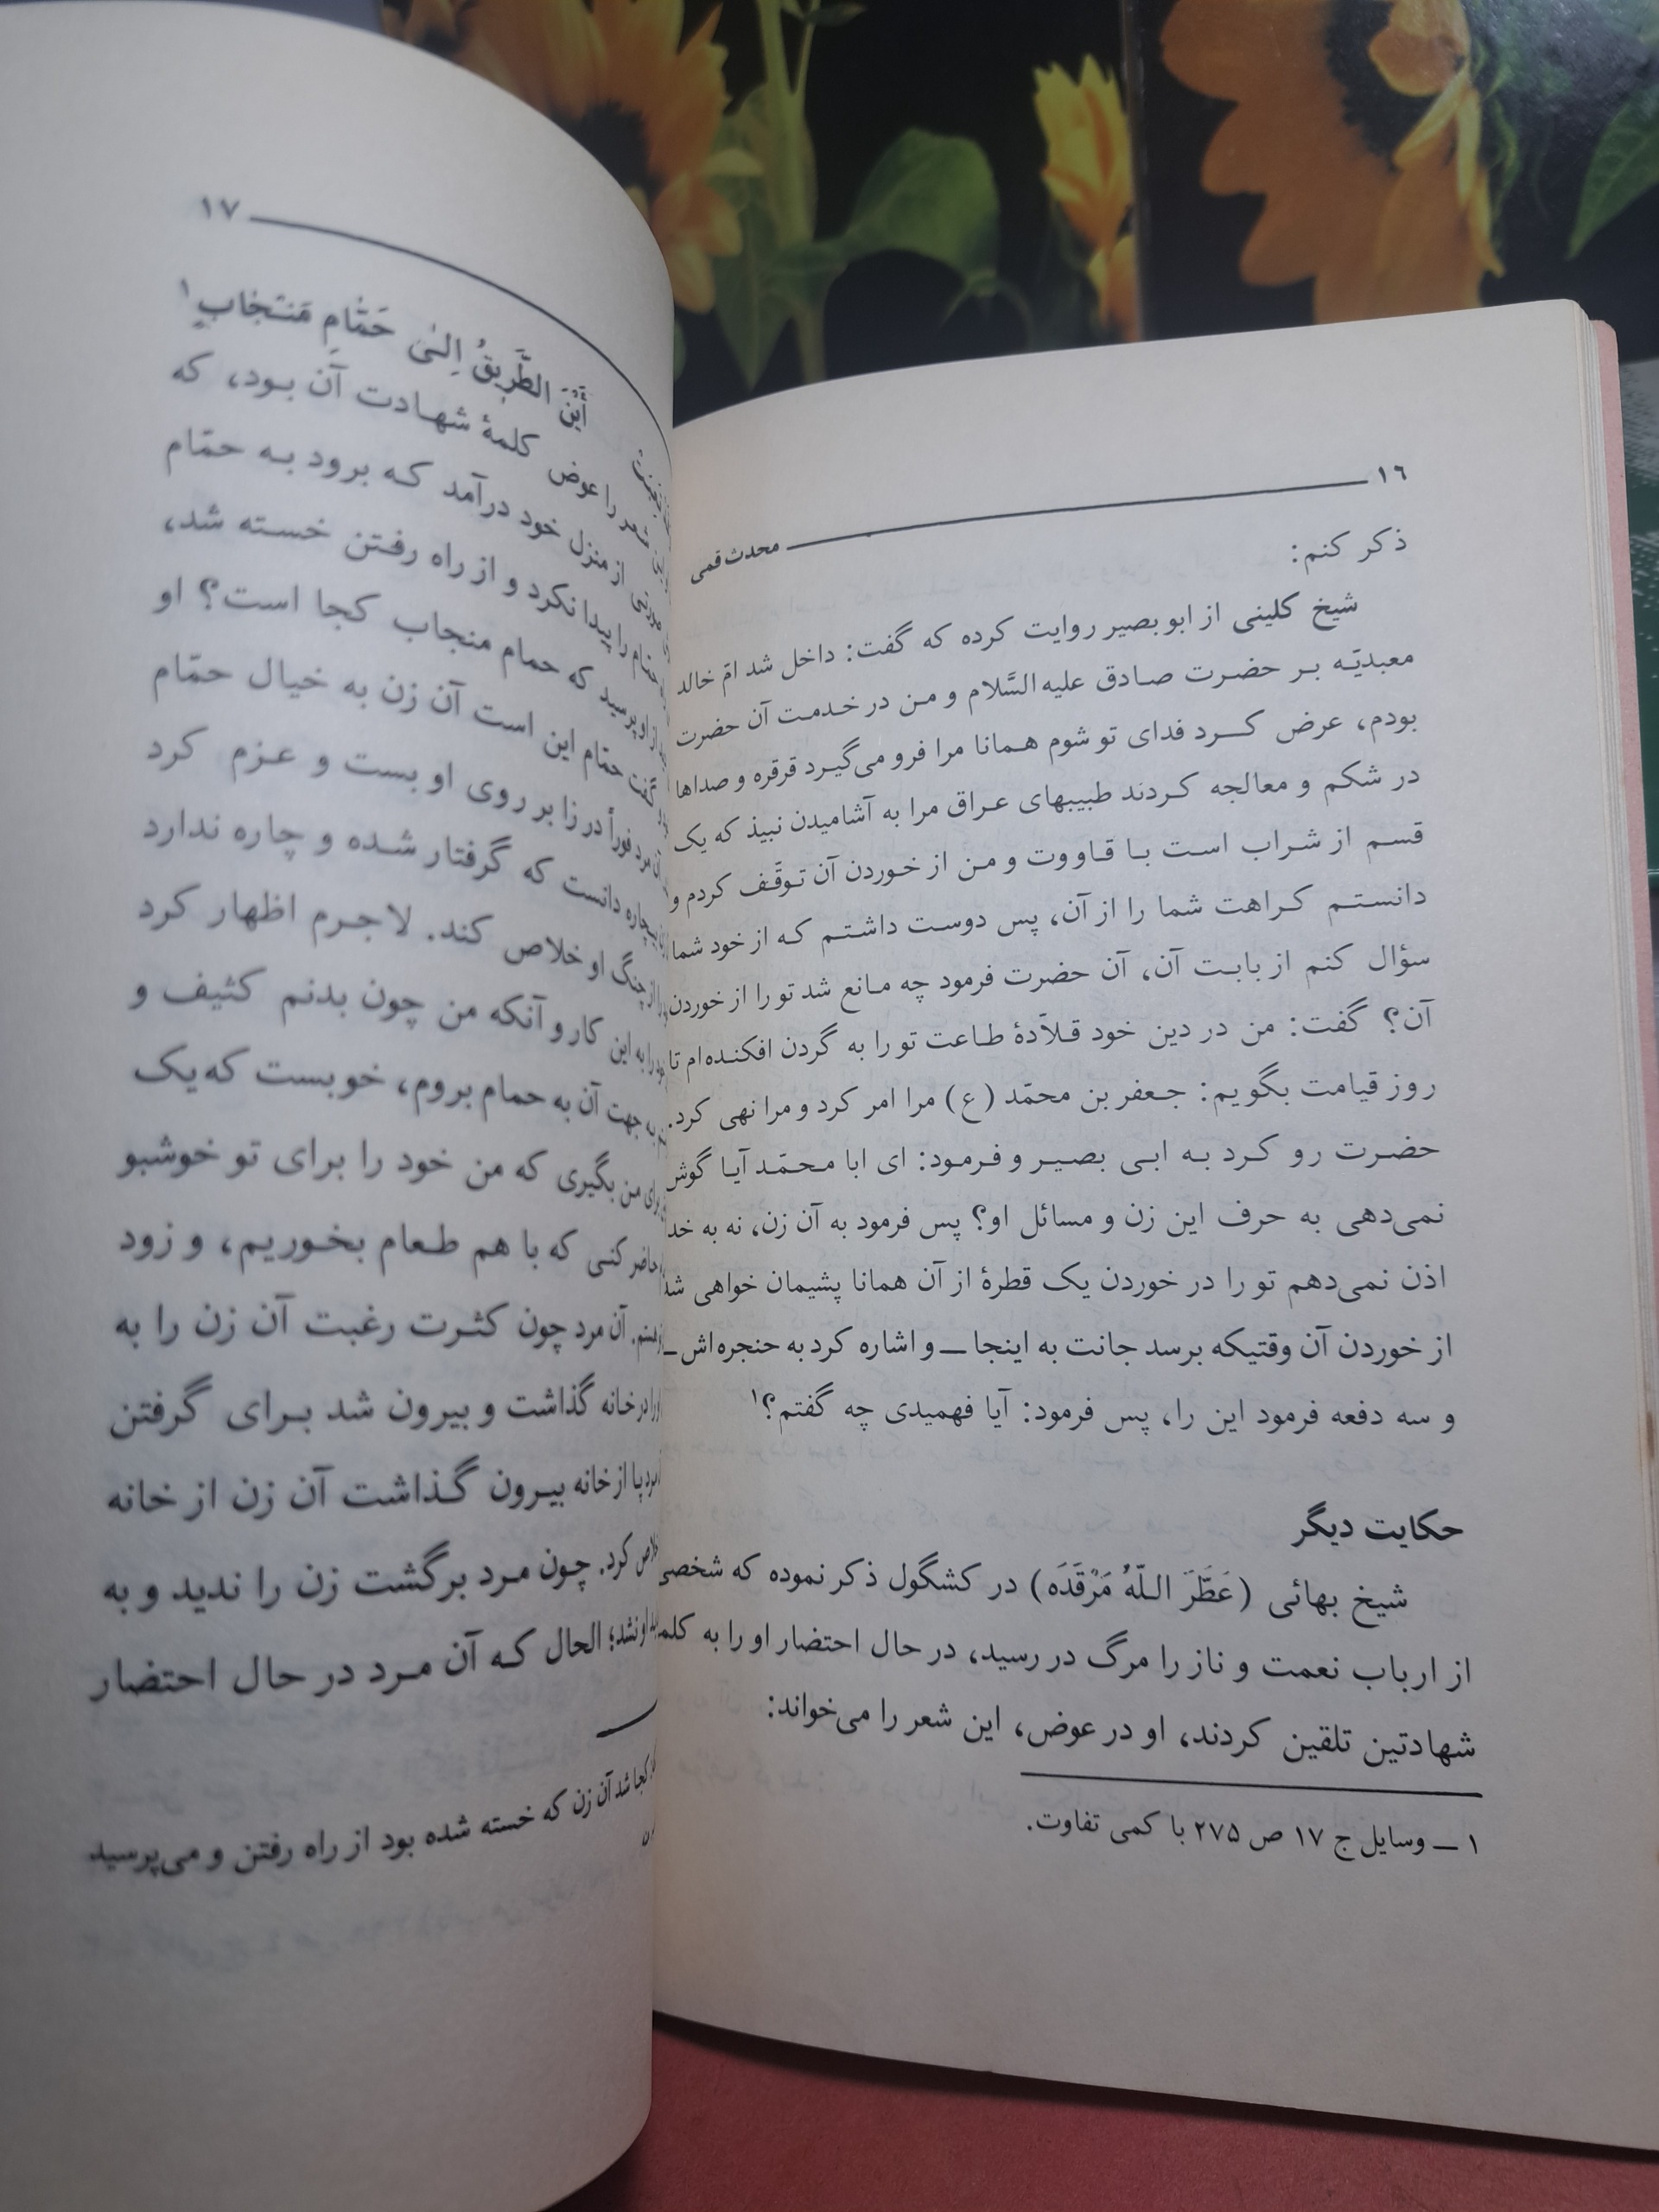 ۱٦
محدث قمی
ذکر کنم:
شیخ کلینی از ابوبصیر روایت کرده که گفت: داخل شد امّ خالد
معبدیّه بر حضرت صادق علیه السَّلام و من در خدمت آن حضرت
بودم، عرض کرد فدای تو شوم همانا مرا فرو می‌گیرد قرقره و صداها
در شکم و معالجه کردند طبیبهای عراق مرا به آشامیدن نبیذ که یک
قسم از شراب است با قاووت و من از خوردن آن توقّف کردم و
دانستم کراهت شما را از آن، پس دوست داشتم که از خود شما
سؤال کنم از بابت آن، آن حضرت فرمود چه مانع شد تو را از خوردن
آن؟ گفت: من در دین خود قلاّدهٔ طاعت تو را به گردن افکنده‌ام تا
روز قیامت بگویم: جعفر بن محمّد (ع) مرا امر کرد و مرا نهی کرد.
حضرت رو کرد به ابی بصیر و فرمود: ای ابا محمّد آیا گوش
نمی‌دهی به حرف این زن و مسائل او؟ پس فرمود به آن زن، نه به خد
اذن نمی‌دهم تو را در خوردن یک قطرهٔ از آن همانا پشیمان خواهی شد
از خوردن آن وقتیکه برسد جانت به اینجا ــ و اشاره کرد به حنجره‌اش ــ
و سه دفعه فرمود این را، پس فرمود: آیا فهمیدی چه گفتم؟۱
حکایت دیگر
شیخ بهائی (عَطَّرَ اللّهُ مَرْقَدَه) در کشگول ذکر نموده که شخصی
از ارباب نعمت و ناز را مرگ در رسید، در حال احتضار او را به کلمه
شهادتین تلقین کردند، او در عوض، این شعر را می‌خواند:
۱ ــ وسایل ج ۱۷ ص ۲۷۵ با کمی تفاوت.
۱۷
أَیْنَ الطَّرِیقُ اِلیٰ حَمّامِ مَنْتَجٰابٍ۱
شعر را عوض کلمهٔ شهادت آن بود، که
از منزل خود درآمد که برود به حمّام
حمّام را پیدا نکرد و از راه رفتن خسته شد،
از او پرسید که حمام منجاب کجا است؟ او
گفت حمّام این است آن زن به خیال حمّام
آن مرد فوراً در را بر روی او بست و عزم کرد
بیچاره دانست که گرفتار شده و چاره ندارد
از چنگ او خلاص کند. لاجرم اظهار کرد
را به این کار و آنکه من چون بدنم کثیف و
به جهت آن به حمام بروم، خوبست که یک
برای من بگیری که من خود را برای تو خوشبو
حاضر کنی که با هم طعام بخوریم، و زود
هستم. آن مرد چون کثرت رغبت آن زن را به
او را در خانه گذاشت و بیرون شد برای گرفتن
مرد پا از خانه بیرون گذاشت آن زن از خانه
خلاص کرد. چون مرد برگشت زن را ندید و به
او نشد؛ الحال که آن مرد در حال احتضار
کجا شد آن زن که خسته شده بود از راه رفتن و می‌پرسید